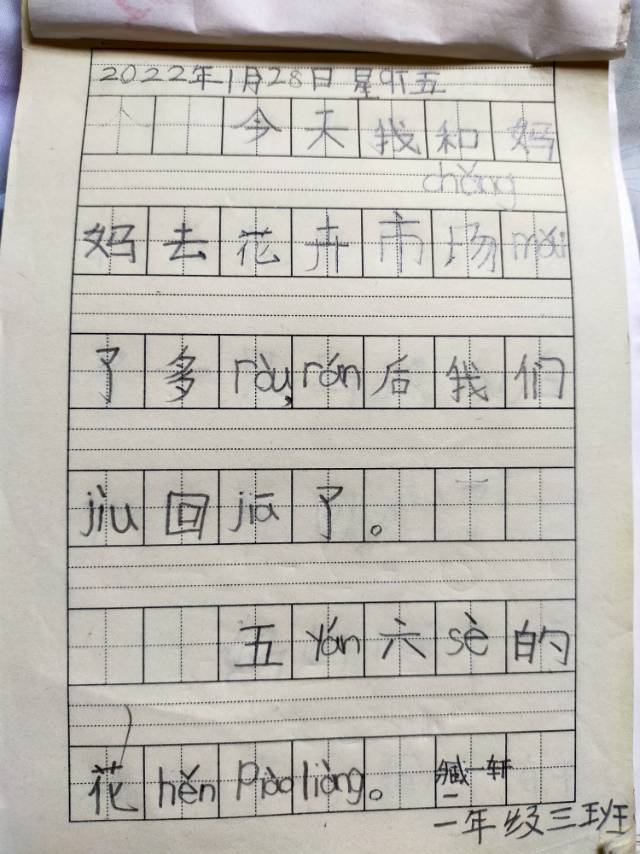 2022年1月28日 星 五
今天我和妈
chǎng
妈去花卉市场mǎi
了多ròu,rán后我们
jiù回jiā了。
五yán六sè的
花hěn piào liàng。 臧一轩
一年级三班